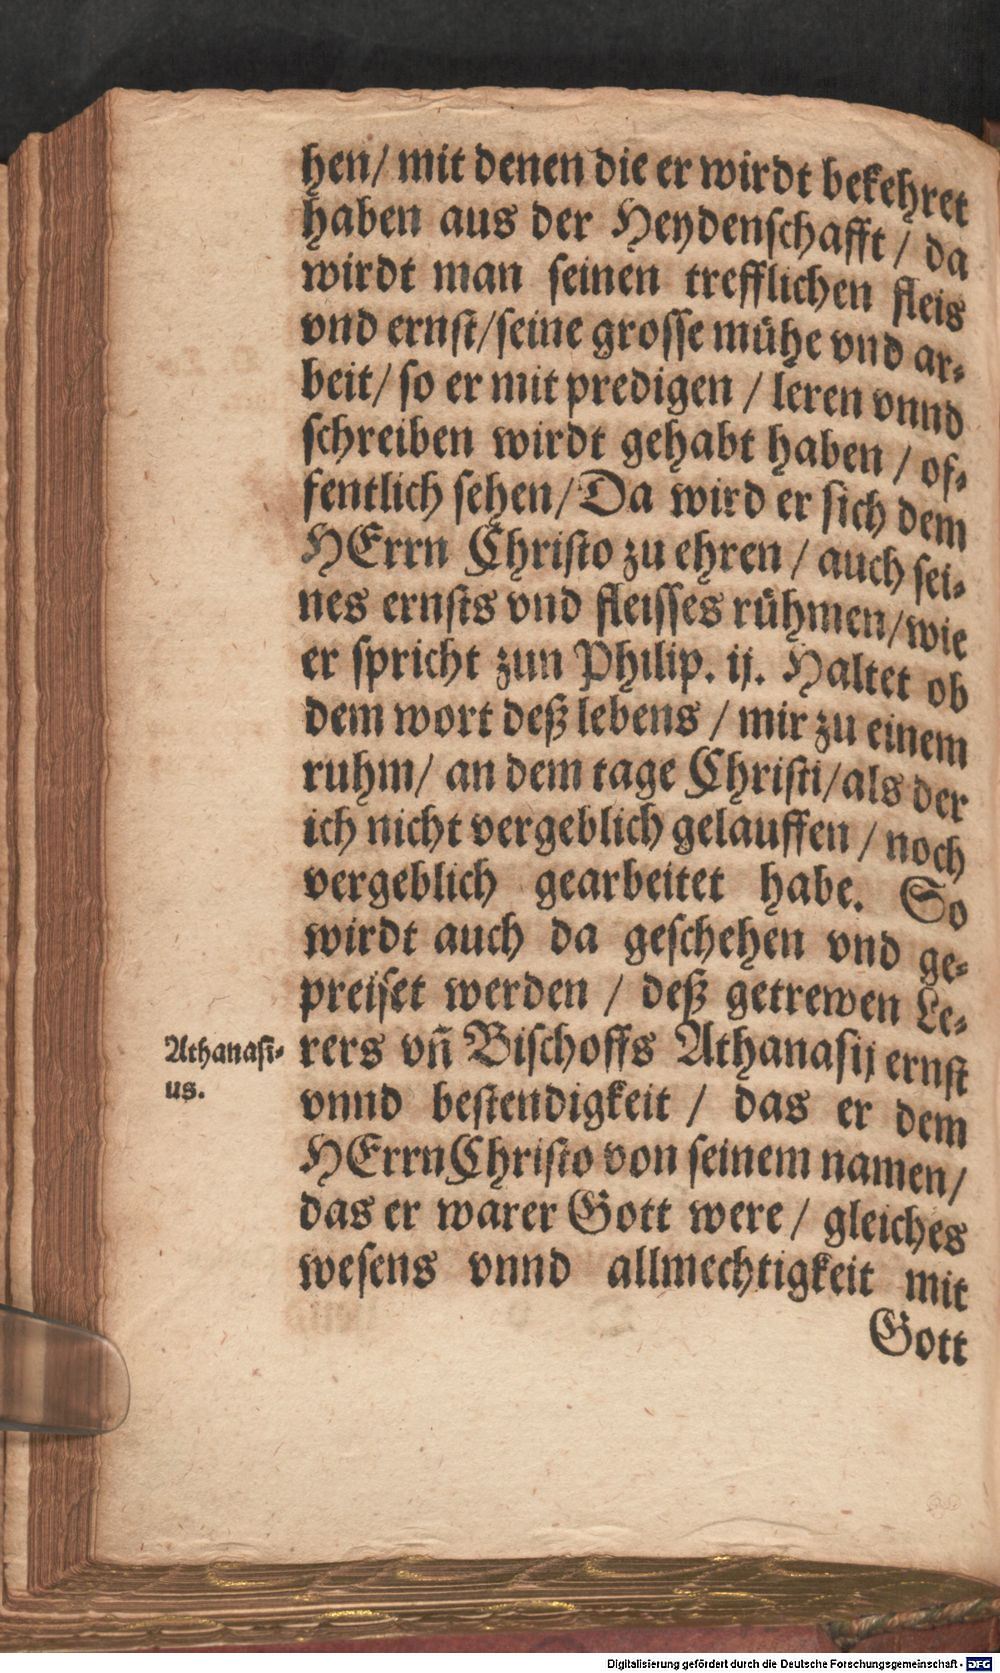 hen/ mit denen die er wirdt bekehret
haben aus der Heydenschafft / da
wirdt man seinen trefflichen fleis
vnd ernst/seine grosse mühe vnd ar-
beit/ so er mit predigen / leren vnnd
schreiben wirdt gehabt haben / of-
fentlich sehen/Da wird er sich dem
HErrn Christo zu ehren / auch sei-
nes ernsts vnd fleisses rühmen/wie
er spricht zun Philip. ij. Haltet ob
dem wort deß lebens / mir zu einem
ruhm/ an dem tage Christi/als der
ich nicht vergeblich gelauffen / noch
vergeblich gearbeitet habe. So
wirdt auch da geschehen vnd ge-
preiset werden / deß getrewen Le-
Athanasi-
us.
rers vñ Bischoffs Athanasij ernst
vnnd bestendigkeit / das er dem
HErrn Christo von seinem namen/
das er warer Gott were / gleiches
wesens vnnd allmechtigkeit mit
Gott
Digitalisierung gefördert durch die Deutsche Forschungsgemeinschaft - DFG